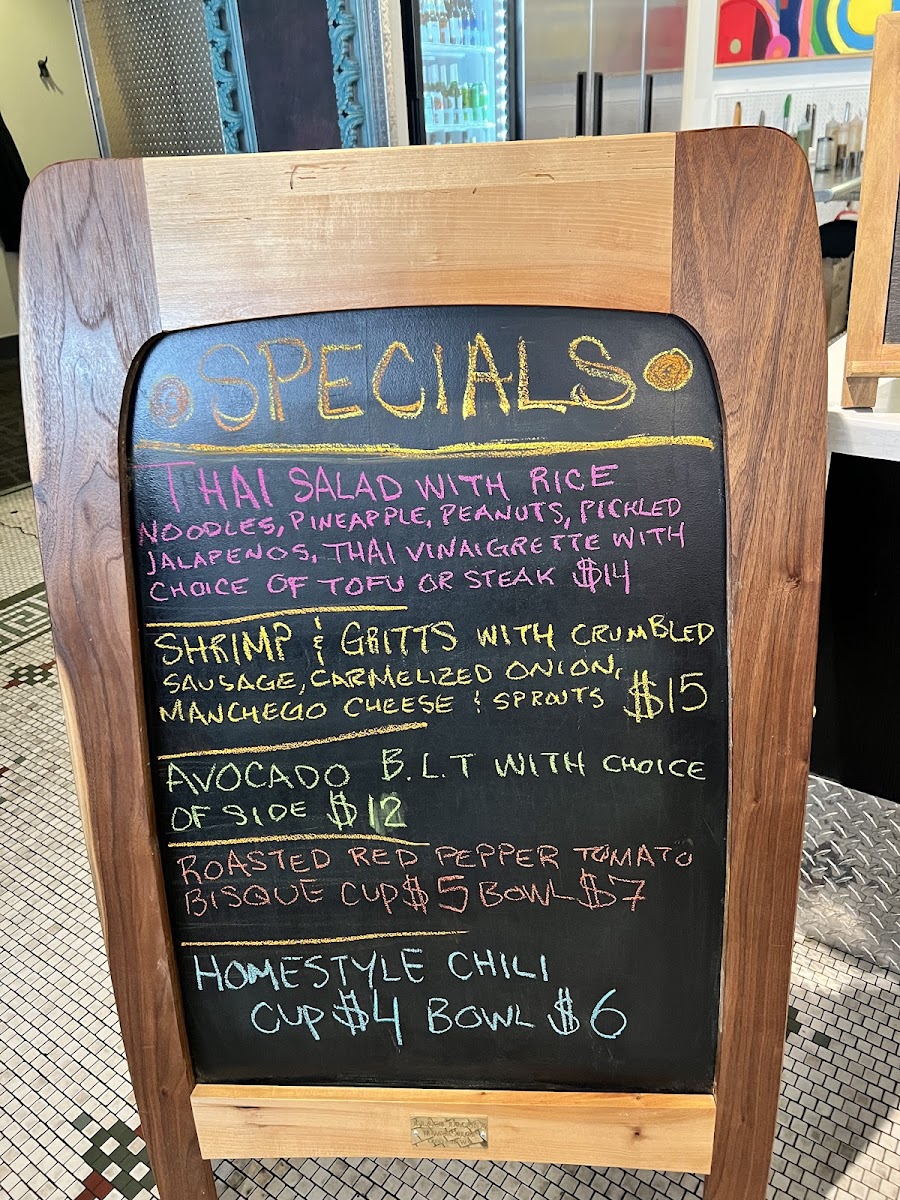 SPECIALS
THAI SALAD WITH RICE
NOODLES, PINEAPPLE, PEANUTS, PICKLED
JALAPENOS, THAI VINAIGRETTE WITH
CHOICE OF TOFU OR STEAK $14
SHRIMP & GRITTS WITH CRUMBLED
SAUSAGE, CARMELIZED ONION,
MANCHEGO CHEESE & SPROUTS $15
AVOCADO B.L.T WITH CHOICE
OF SIDE $12
ROASTED RED PEPPER TOMATO
BISQUE CUP $5 BOWL $7
HOMESTYLE CHILI
CUP $4 BOWL $6